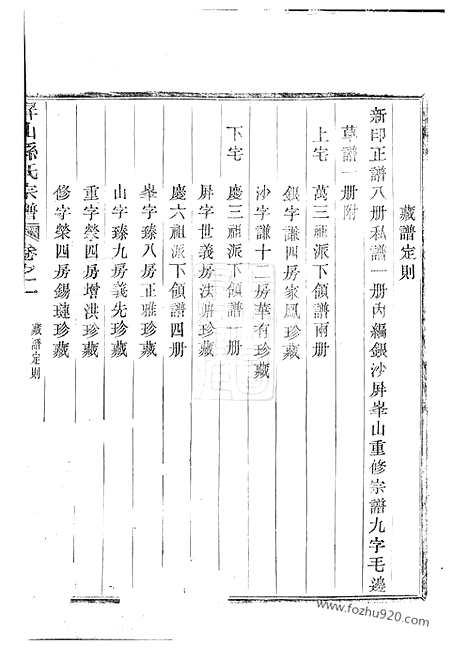 藏譜定則
新印正譜八册私譜一册內編銀沙屏峯山重修宗譜九字毛邊
草譜一册附
上宅 萬三祖派下領譜兩册
銀字謙四房家風珍藏
沙字謙十二房華有珍藏
下宅 慶三祖派下領譜一册
屏字世義房法
珍藏
慶六祖派下領譜四册
峯字臻八房正雅珍藏
山字臻九房義先珍藏
重字榮四房增洪珍藏
修字榮四房錫璉珍藏
屏山孫氏宗譜 卷之一 藏譜定則
www.fozhu920.com